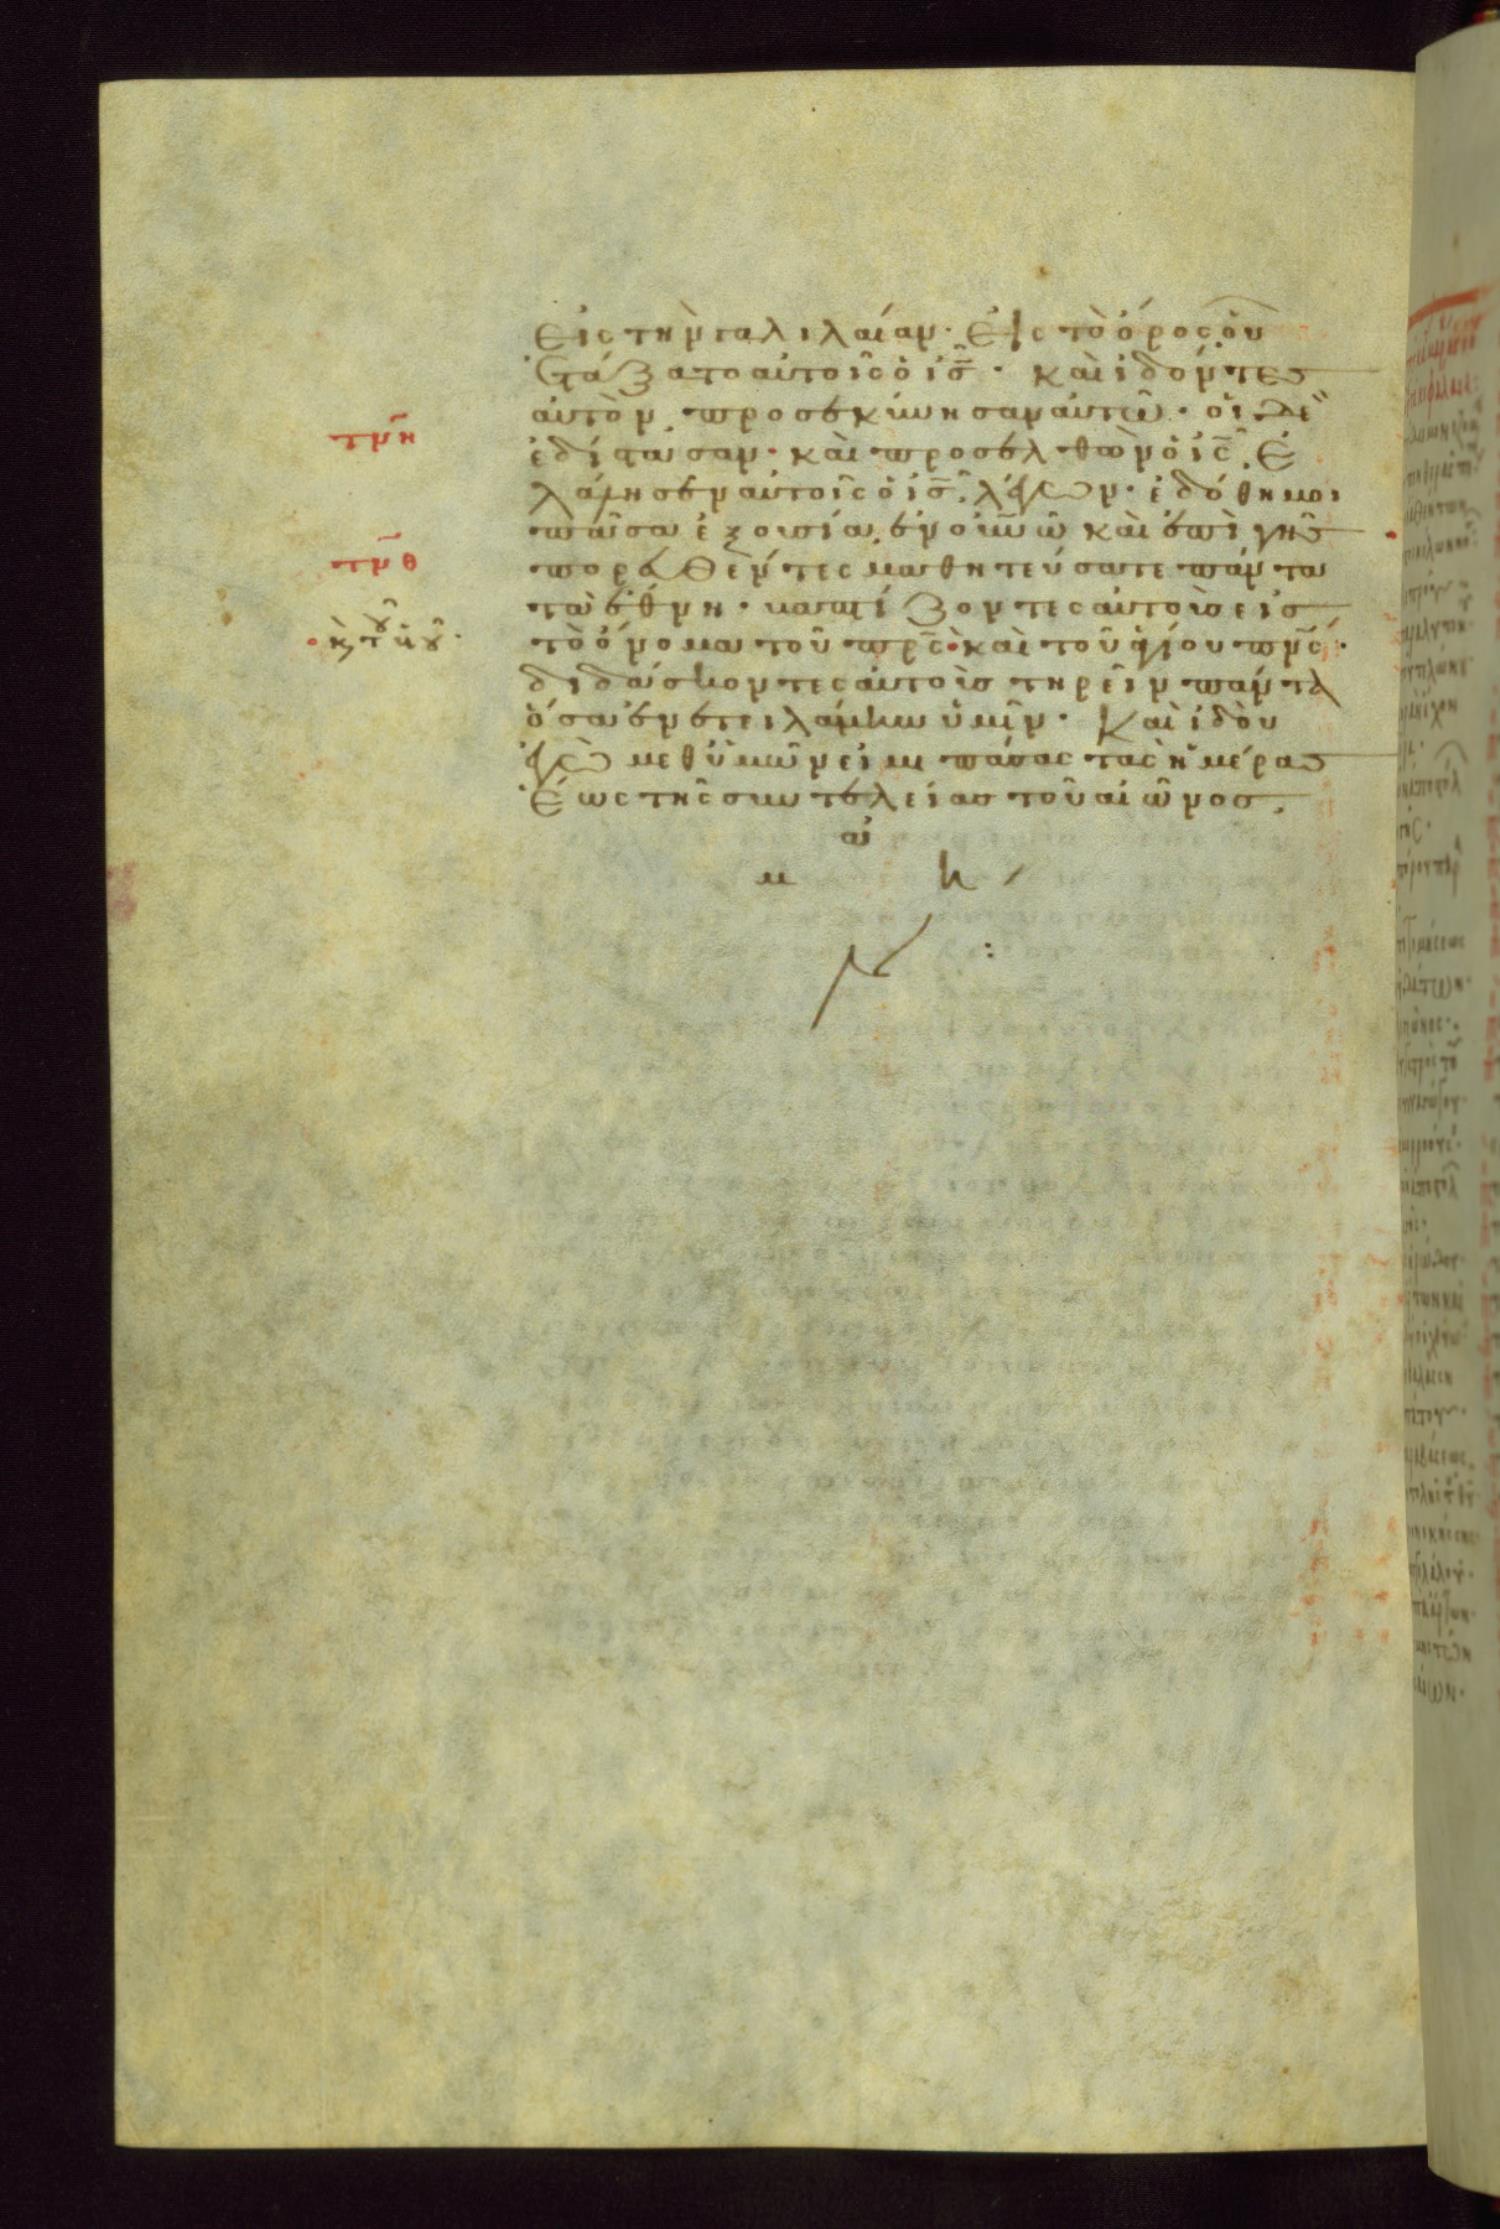 εἰς τὴν γαλιλαίαν· εἰς τὸ ὄρος, οὗ
ἐτάξατο αὐτοῖς ὁ ἰς̅· καὶ ἰδόντες
αὐτὸν, προσεκύνησαν αὐτῶ· οἱ δὲ
τμη
ἐδίστασαν· καὶ προσελθὼν ὁ ἰς̅, ἐ
λάλησεν αὐτοῖς ὁ ἰς̅, λέγων· ἐδόθη μοι
πᾶσα ἐξουσία, ἐν οὐνω̅ καὶ ἐπὶ γῆς
τμθ
πορευθέντες μαθητεύσατε πάντα
τὰ ἔθνη· βαπτίζοντες αὐτοὺς εἰς
κ, τοῦ υἱοῦ·
τὸ ὄνομα τοῦ πρς̅· καὶ τοῦ ἁγίου πνς̅·
διδάσκοντες αὐτοὺς τηρεῖν πάντα
ὅσα ἐνετειλάμην ὑμῖν· καὶ ἰδοὺ
ἐγὼ μεθ ὑμῶν εἰμι πάσας τὰς ἡμέρας
ἕως τῆς συντελείας τοῦ αἰῶνος.
ἀ
μ ή
ν :